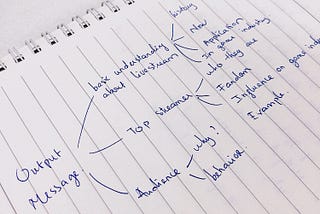 Output
Message
basic understanding
about livestream
history
Now
Application
In game industry
TOP streamer
who they are
Fandom
Influence on game indus
Example
Audience
why?
behavior